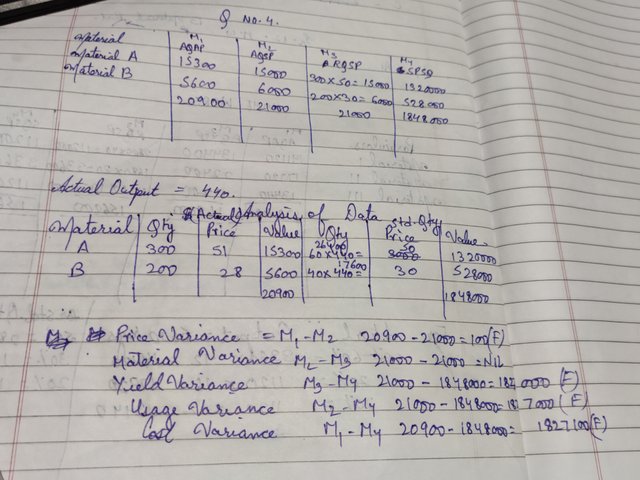 Q No. 4.
Material M1 M2 M3 M4
AQAP AQSP RQSP SPSQ
Material A 15300 15000 300x50=15000 1320000
Material B 5600 6000 200x30=6000 528000
20900 21000 21000 1848000
Actual Output = 440.
(Actual) Analysis of Data Std-Qty
Material Qty Price Value Qty Price Value
A 300 51 15300 26400 60x440= 50 1320000
B 200 28 5600 17600 40x440= 30 528000
20900 1848000
Price Variance = M1-M2 20900-21000=100(F)
Material Variance M2-M3 21000-21000=NIL
Yield Variance M3-M4 21000-1848000= (F)
Usage Variance M2-M4 21000-1848000= (F)
Cost Variance M1-M4 20900-1848000= 1827100(F)